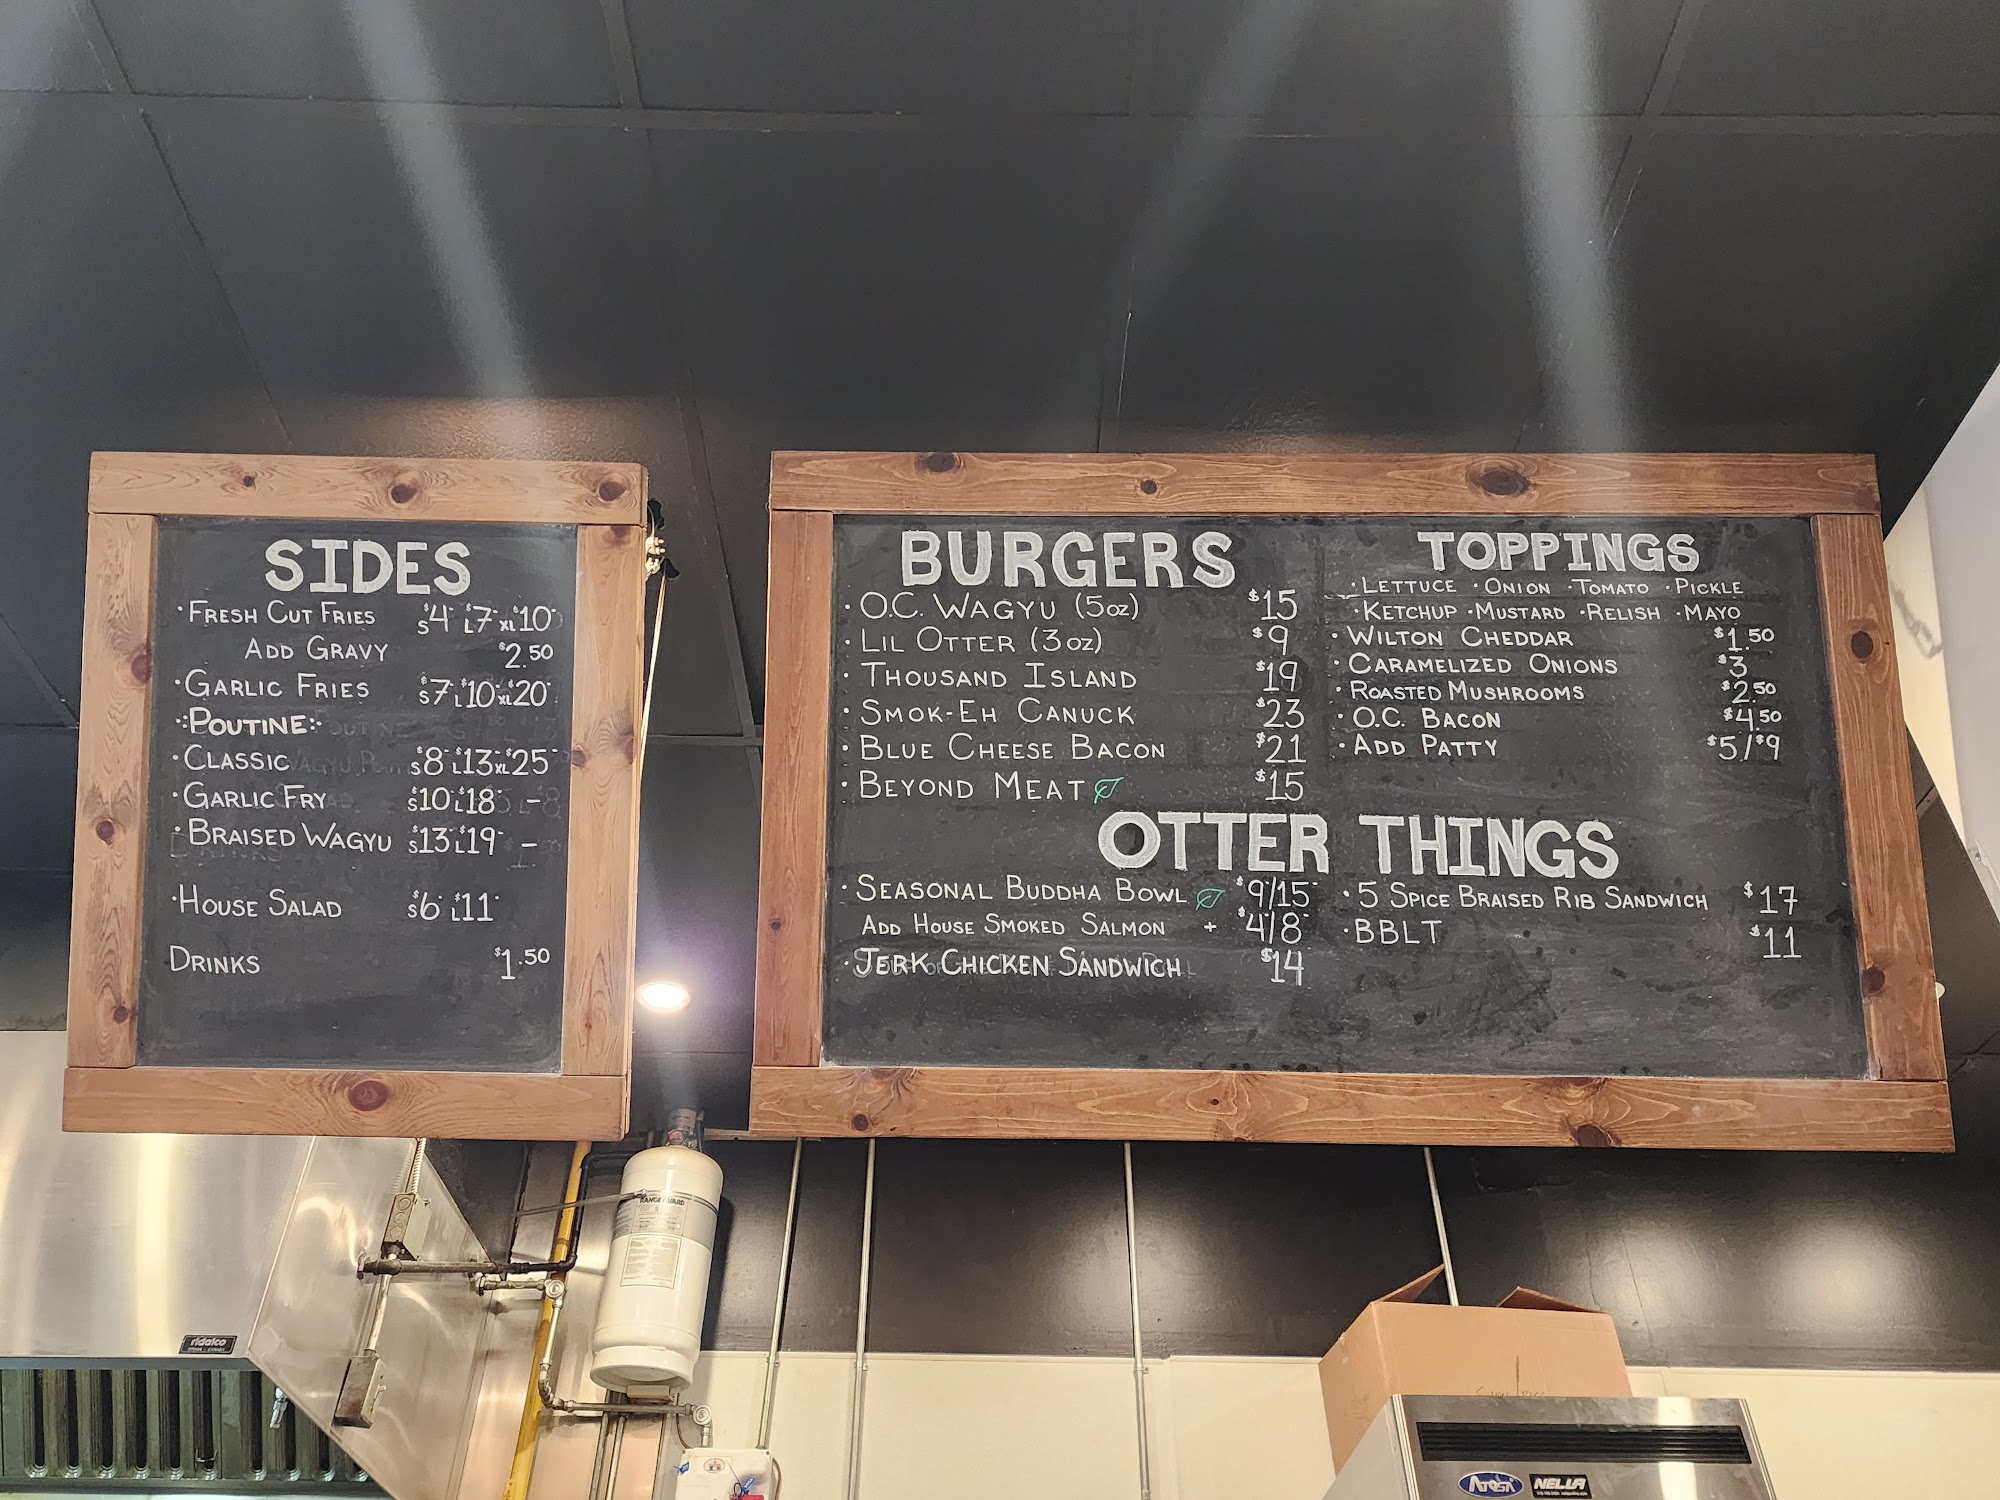 SIDES
·FRESH CUT FRIES S$4- L$7- XL$10-
ADD GRAVY $2.50
·GARLIC FRIES S$7- L$10- XL$20-
:POUTINE:
·CLASSIC S$8- L$13- XL$25-
·GARLIC FRY S$10- L$18- -
·BRAISED WAGYU S$13- L$19- -
·HOUSE SALAD S$6- L$11-
DRINKS $1.50
BURGERS
·O.C. WAGYU (5oz) $15
·LIL OTTER (3oz) $9
·THOUSAND ISLAND $19
·SMOK-EH CANUCK $23
·BLUE CHEESE BACON $21
·BEYOND MEAT $15
TOPPINGS
·LETTUCE ·ONION ·TOMATO ·PICKLE
·KETCHUP ·MUSTARD ·RELISH ·MAYO
·WILTON CHEDDAR $1.50
·CARAMELIZED ONIONS $3
·ROASTED MUSHROOMS $2.50
·O.C. BACON $4.50
·ADD PATTY $5/$9
OTTER THINGS
·SEASONAL BUDDHA BOWL $9-/15-
ADD HOUSE SMOKED SALMON + $4-/8-
·JERK CHICKEN SANDWICH $14
·5 SPICE BRAISED RIB SANDWICH $17
·BBLT $11
RANGE GUARD
ridalco
Atosa
NELLA